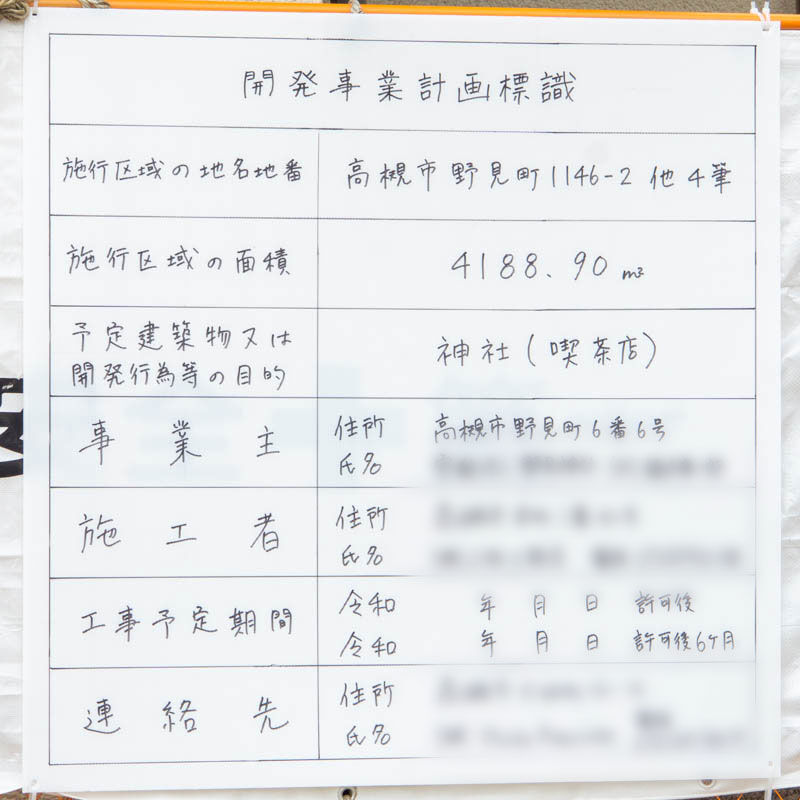 開発事業計画標識
施行区域の地名地番 高槻市野見町1146-2 他4筆
施行区域の面積 4188.90 m²
予定建築物又は
開発行為等の目的
神社(喫茶店)
事業主 住所 高槻市野見町6番6号
氏名
施工者 住所
氏名
工事予定期間 令和 年 月 日 許可後
令和 年 月 日 許可後6ヶ月
連絡先 住所
氏名